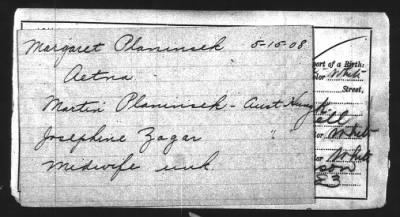 Margaret Planinsek 5-15-08
Aetna
Martin Planinsek - Aust Hung
Josephine Zagar " "
Midwife unk.
port of a Birth:
lor White
Street,
lor White
lor White
son
23